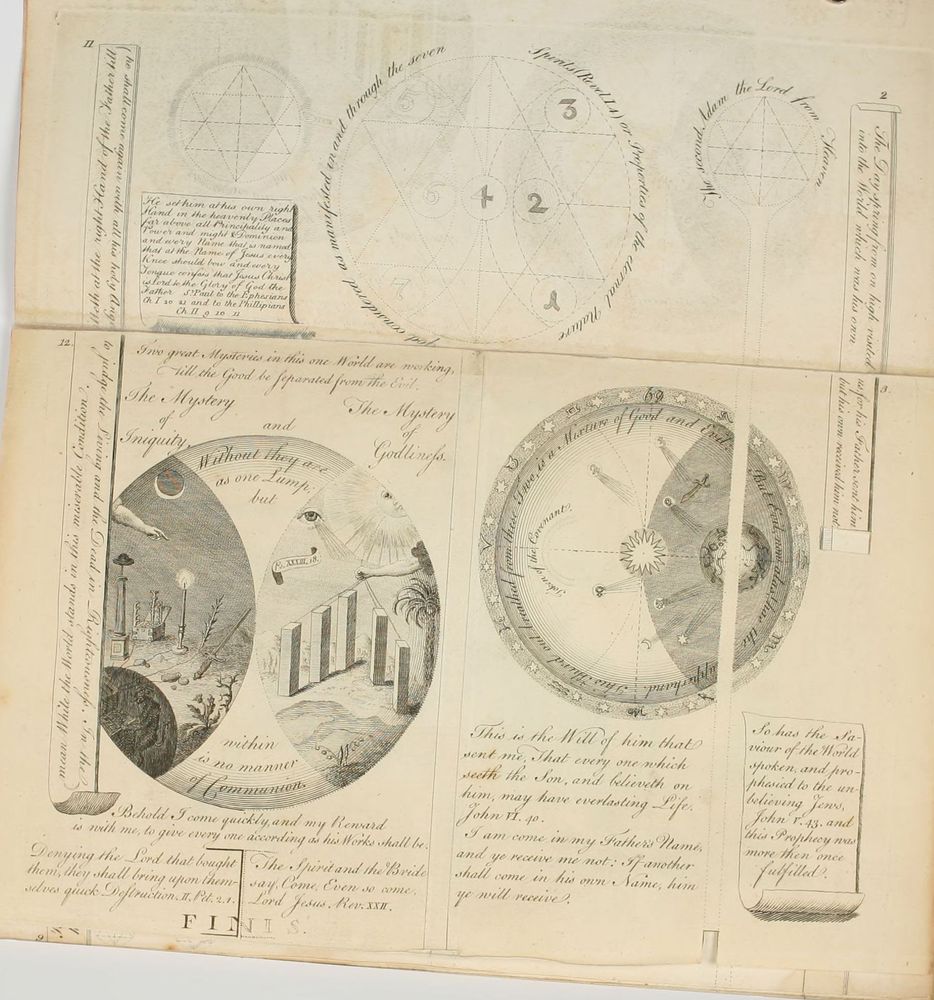 11
till he shall come again with all his holy
sitteth at the right Hand of the Father till
He set him at his own right
Hand in the heavenly Places
far above all Principality and
Power and might & Dominion
and every Name that is named
that at the Name of Jesus every
Knee should bow and every
Tongue confess that Jesus Christ
is Lord to the Glory of God the
Father St. Paul to the Ephesians
Ch. I 20 21 and to the Phillipians
Ch II 9 10 11
God considered as manifested in and through the seven
Spirits (Revel. I 4) or Properties of the eternal Nature
5
3
6
4
2
7
1
The second Adam the Lord from Heaven
2
The Day spring from on high visited
into the World which was his own
12.
to judge the Living and the Dead in Righteousness. In the
mean While the World stands in this miserable Condition.
Two great Mysteries in this one World are working,
till the Good be separated from the Evil.
The Mystery
of
Iniquity,
and
The Mystery
of
Godliness.
Without they are
as one Lump;
but
Ps. XXXIII. 18.
within
is no manner
of Communion.
Behold I come quickly, and my Reward
is with me, to give every one according as his Works shall be.
Denying the Lord that bought
them, they shall bring upon them-
selves quick Destruction. II. Pet. 2. 1.
The Spirit and the Bride
say, Come. Even so come,
Lord Jesus. Rev. XXII.
FINIS.
3.
us for his Father sent him
but his own received him not
This Third out breathed from these Two, is a Mixture of Good and Evil,
But Evil now therein has the upperhand.
Token of the Covenant
This is the Will of him that
sent me, That every one which
seeth the Son, and believeth on
him, may have everlasting Life.
John VI. 40.
I am come in my Fathers Name,
and ye receive me not: If another
shall come in his own Name, him
ye will receive.
So has the Sa-
viour of the World
spoken, and pro-
phesied to the un-
believing Jews,
John V. 43. and
this Prophecy was
more then once
fulfilled.